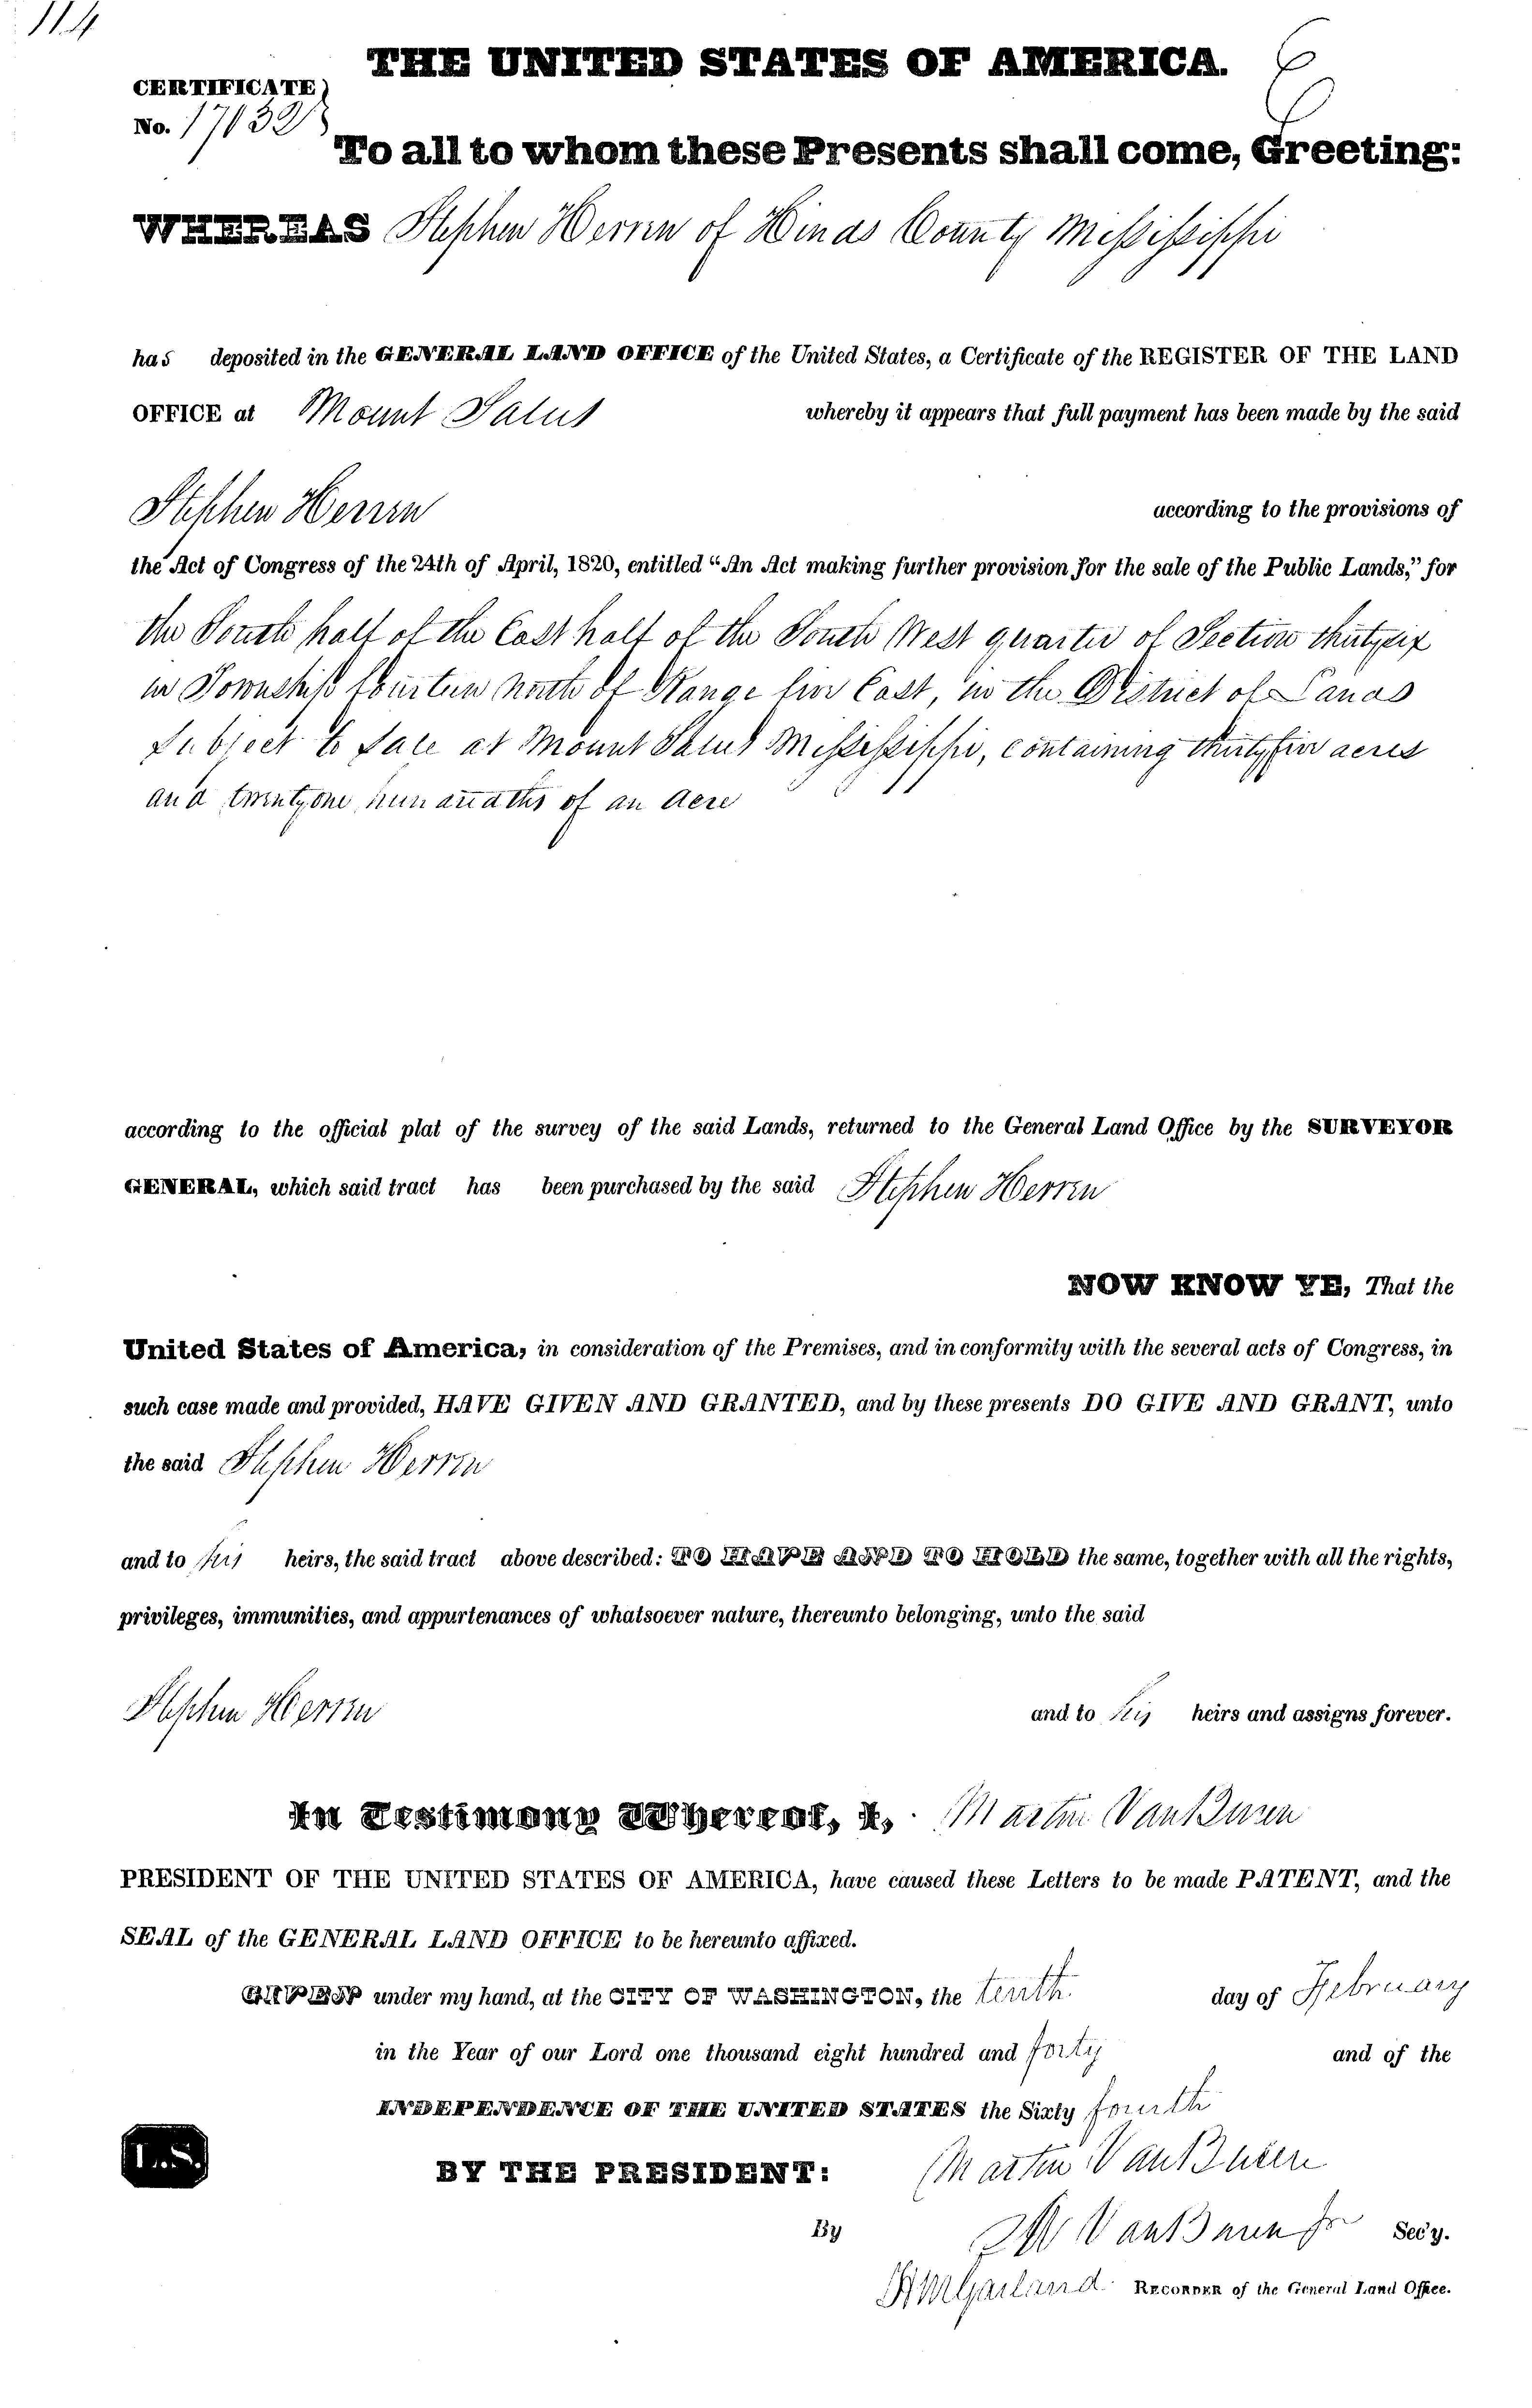 114
THE UNITED STATES OF AMERICA.
CERTIFICATE
No. 17032
To all to whom these Presents shall come, Greeting:
WHEREAS Stephen Herren of Hinds County Mississippi
has deposited in the GENERAL LAND OFFICE of the United States, a Certificate of the REGISTER OF THE LAND
OFFICE at Mount Salus whereby it appears that full payment has been made by the said
Stephen Herren according to the provisions of
the Act of Congress of the 24th of April, 1820, entitled "An Act making further provision for the sale of the Public Lands," for
the South half of the East half of the South West quarter of Section thirty six
in Township fourteen North of Range five East, in the District of Lands
subject to sale at Mount Salus Mississippi, containing thirty five acres
and twenty one hundredths of an acre
according to the official plat of the survey of the said Lands, returned to the General Land Office by the SURVEYOR
GENERAL, which said tract has been purchased by the said Stephen Herren
NOW KNOW YE, That the
United States of America, in consideration of the Premises, and in conformity with the several acts of Congress, in
such case made and provided, HAVE GIVEN AND GRANTED, and by these presents DO GIVE AND GRANT, unto
the said Stephen Herren
and to his heirs, the said tract above described: TO HAVE AND TO HOLD the same, together with all the rights,
privileges, immunities, and appurtenances of whatsoever nature, thereunto belonging, unto the said
Stephen Herren and to his heirs and assigns forever.
In Testimony Whereof, I, Martin Van Buren
PRESIDENT OF THE UNITED STATES OF AMERICA, have caused these Letters to be made PATENT, and the
SEAL of the GENERAL LAND OFFICE to be hereunto affixed.
GIVEN under my hand, at the CITY OF WASHINGTON, the tenth day of February
in the Year of our Lord one thousand eight hundred and forty and of the
INDEPENDENCE OF THE UNITED STATES the Sixty fourth
L.S.
BY THE PRESIDENT: Martin Van Buren
By M Van Buren Jr Sec'y.
H M Garland RECORDER of the General Land Office.